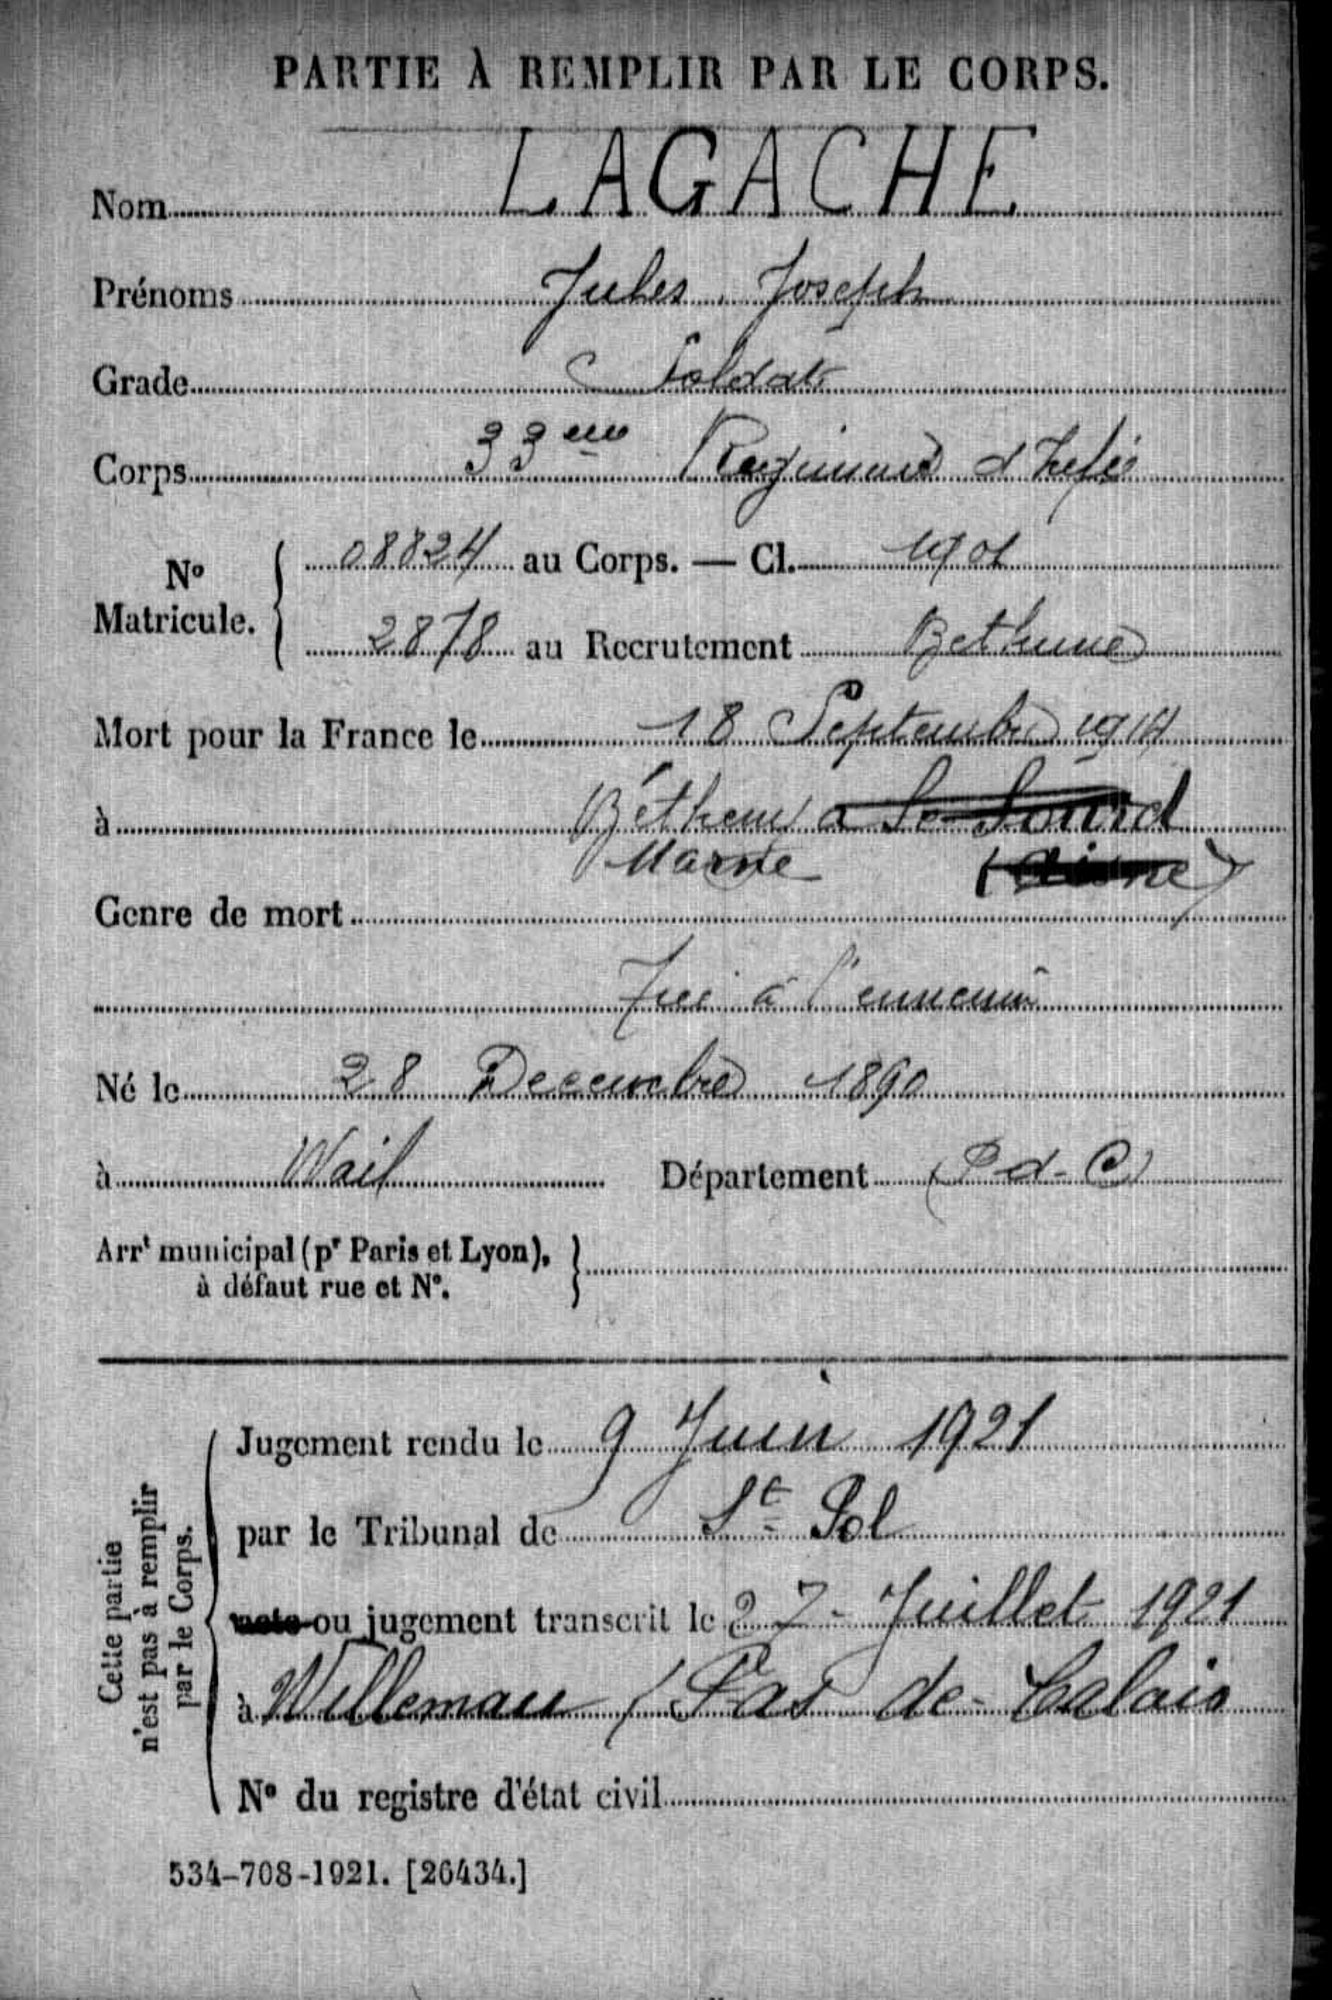 PARTIE À REMPLIR PAR LE CORPS.
Nom LAGACHE
Prénoms Jules Joseph
Grade Soldat
Corps 33eme Regiment d'Infie
No Matricule. 08824 au Corps. — Cl. 1901
2878 au Recrutement Bethune
Mort pour la France le 18 Septembre 1914
à Bétheny a Le Sourd
Marne (Aisne)
Genre de mort
Tué à l'ennemi
Né le 28 Decembre 1890
à Wail Département (P-d-C)
Arrt municipal (pr Paris et Lyon),
à défaut rue et N°.
Cette partie
n'est pas à remplir
par le Corps.
Jugement rendu le 9 Juin 1921
par le Tribunal de St Pol
acte ou jugement transcrit le 27 Juillet 1921
à Willeman (Pas de Calais
N° du registre d'état civil
534-708-1921. [26434.]